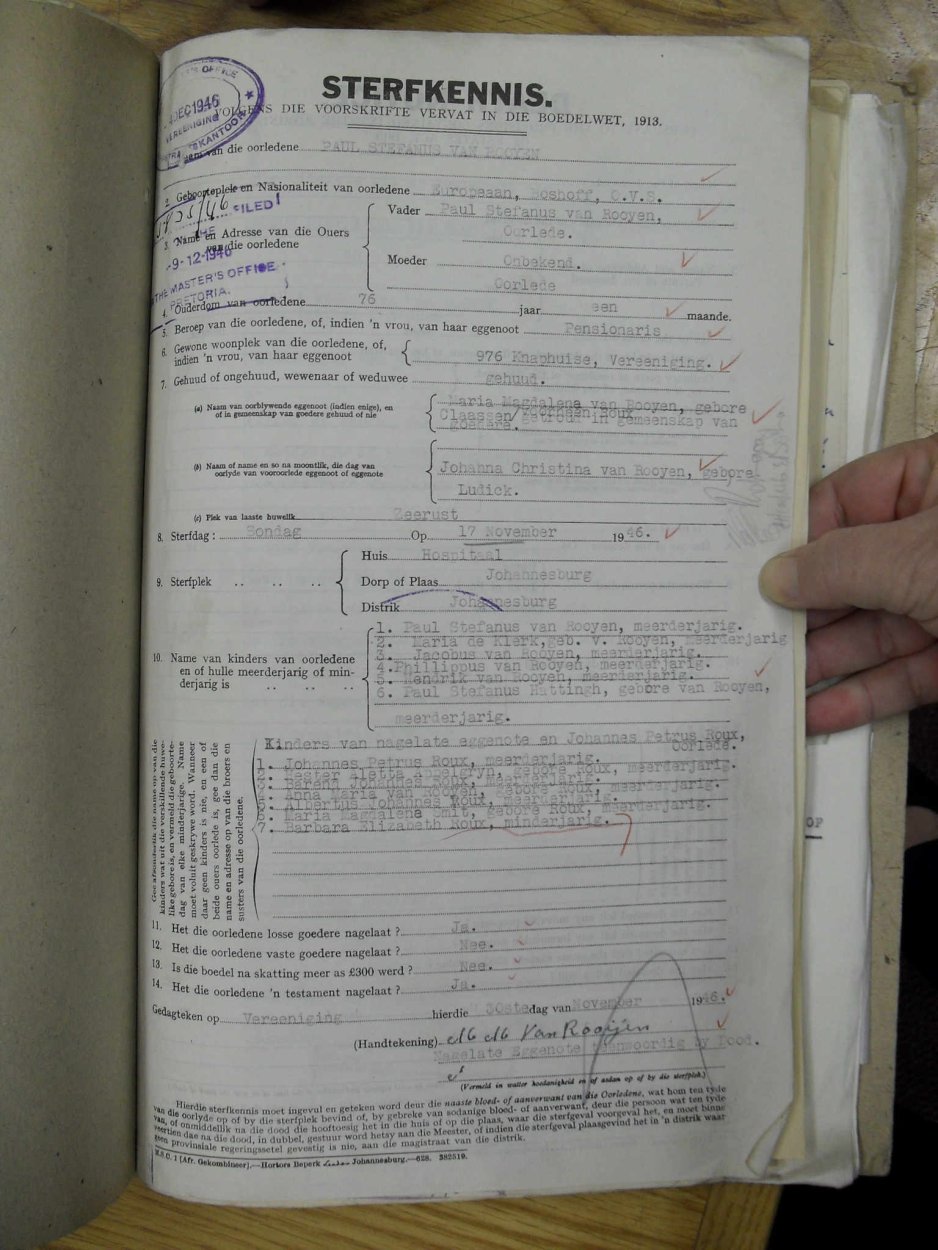 STERFKENNIS.
VOLGENS DIE VOORSKRIFTE VERVAT IN DIE BOEDELWET, 1913.
OFFICE
DEC 1946
VEREENIGING
KANTOOR
van die oorledene PAUL STEFANUS VAN ROOYEN
2. Geboorteplek en Nasionaliteit van oorledene Europeaan, Boshoff, O.V.S.
FILED
9-12-1946
THE MASTER'S OFFICE
PRETORIA.
3. Name en Adresse van die Ouers van die oorledene
Vader Paul Stefanus van Rooyen,
Oorlede.
Moeder Onbekend.
Oorlede
4. Ouderdom van oorledene 76 jaar een maande.
5. Beroep van die oorledene, of, indien 'n vrou, van haar eggenoot Pensionaris
6. Gewone woonplek van die oorledene, of, indien 'n vrou, van haar eggenoot
976 Knaphuise, Vereeniging.
7. Gehuud of ongehuud, wewenaar of weduwee gehuud.
(a) Naam van oorblywende eggenoot (indien enige), en of in gemeenskap van goedere gehuud of nie
Maria Magdalena van Rooyen, gebore
Claassen/voorheen Roux
getroud in gemeenskap van
goedere.
(b) Naam of name en so na moontlik, die dag van oorlyde van vooroorlede eggenoot of eggenote
Johanna Christina van Rooyen, gebore
Ludick.
(c) Plek van laaste huwelik Zeerust
8. Sterfdag : Sondag Op 17 November 1946.
9. Sterfplek
Huis Hospitaal
Dorp of Plaas Johannesburg
Distrik Johannesburg
10. Name van kinders van oorledene en of hulle meerderjarig of minderjarig is
1. Paul Stefanus van Rooyen, meerderjarig.
2. Maria de Klerk, geb. v. Rooyen, meerderjarig
3. Jacobus van Rooyen, meerderjarig.
4. Phillippus van Rooyen, meerderjarig.
5. Hendrik van Rooyen, meerderjarig.
6. Paul Stefanus Hattingh, gebore van Rooyen,
meerderjarig.
Gee afsonderlik die name op van die kinders wat uit die verskillende huwelike gebore is, en vermeld die geboortedag van elke minderjarige. Name moet voluit geskrywe word. Wanneer daar geen kinders is nie, en een of beide ouers oorlede is, gee dan die name en adresse op van die broers en susters van die oorledene.
Kinders van nagelate eggenote en Johannes Petrus Roux,
oorlede.
1. Johannes Petrus Roux, meerderjarig.
2. Hester Aletta gebore Roux, meerderjarig.
3. Barend Johannes Roux, meerderjarig.
4. Anna Maria van Rooyen, gebore Roux, meerderjarig.
5. Albertus Johannes Roux, meerderjarig.
6. Maria Magdalena Smit, gebore Roux, meerderjarig.
7. Barbara Elizabeth Roux, minderjarig.
11. Het die oorledene losse goedere nagelaat ? Ja.
12. Het die oorledene vaste goedere nagelaat ? Nee.
13. Is die boedel na skatting meer as £300 werd ? Nee.
14. Het die oorledene 'n testament nagelaat ? Ja.
Gedagteken op Vereeniging hierdie 30ste dag van November 1946.
(Handtekening) M M Van Rooijen
Nagelate Eggenote teenwoordig by Dood.
(Vermeld in watter hoedanigheid en of aldan op of by die sterfplek.)
Hierdie sterfkennis moet ingevul en geteken word deur die naaste bloed- of aanverwant van die Oorledene, wat hom ten tyde
van die oorlyde op of by die sterfplek bevind of, by gebreke van sodanige bloed- of aanverwant, deur die persoon wat ten tyde
van, of onmiddelik na die dood die hooftoesig het in die huis of op die plaas, waar die sterfgeval voorgeval het, en moet binne
veertien dae na die dood, in dubbel, gestuur word hetsy aan die Meester, of indien die sterfgeval plaasgevind het in 'n distrik waar
geen provinsiale regeringssetel gevestig is nie, aan die magistraat van die distrik.
M.S.C. 1 [Afr. Gekombineer].—Hortors Beperk Johannesburg.—628. 382519.
OP